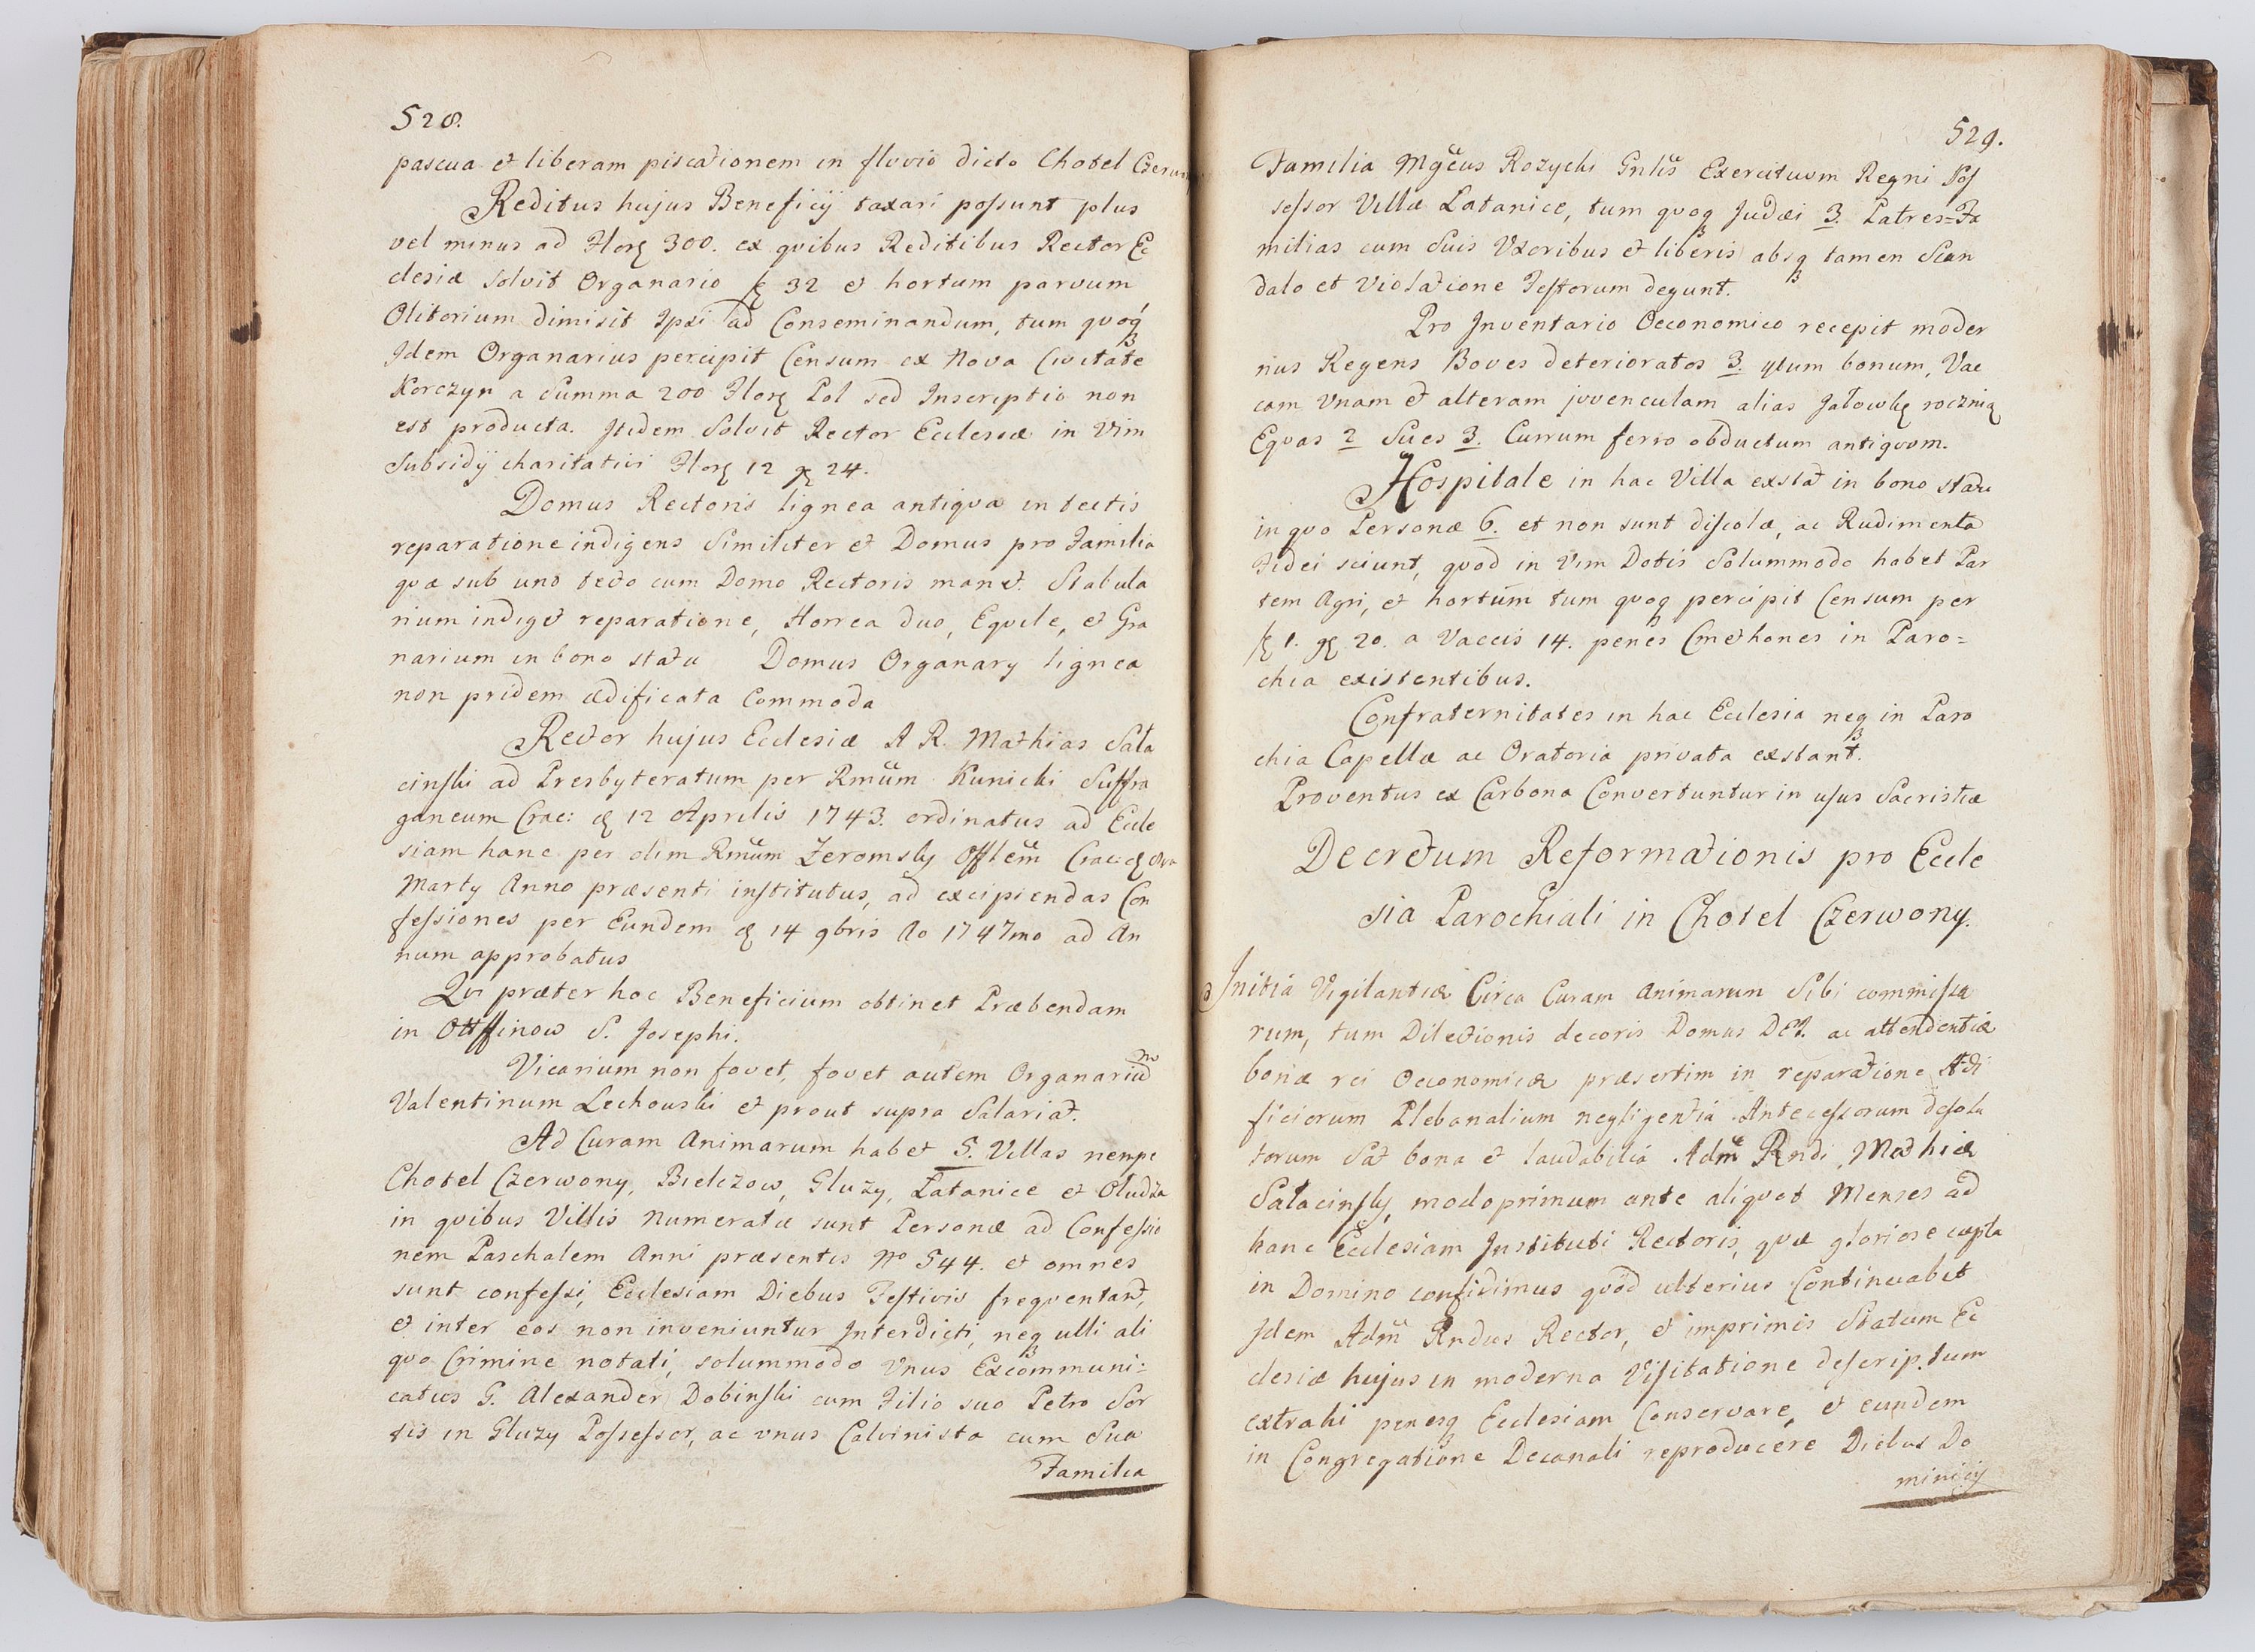 528.
pascua et liberam piscationem in fluvio dicto Chotel
Reditus hujus Beneficij taxari possunt plus
vel minus ad Flor 300. ex quibus Reditibus Rector Ec
clesiæ solvit Organario f 32 et hortum parvum
Olitorium dimisit Ipsi ad Conseminandum, tum quoq
Idem Organarius percipit Censum ex Nova Civitate
Korczyn a Summa 200 Flor Pol sed Inscriptio non
est producta. Itidem Solvit Rector Ecclesiæ in Vim
Subsidij charitativi Flor 12 g 24.
Domus Rectoris lignea antiqua in tectis
reparatione indigens Similiter et Domus pro Familia
quæ sub uno tecto cum Domo Rectoris manet. Stabula
rium indiget reparatione, Horrea duo, Equile, et Gra
narium in bono statu Domus Organary lignea
non pridem ædificata Commoda
Rector hujus Ecclesiæ A R. Mathias Sala
cinski ad Presbyteratum per Rmum Kunicki Suffra
ganeum Crac: d 12 Aprilis 1743. ordinatus ad Eccle
siam hanc per olim Rmum Zeromsky Offlem Crac: d
Marty Anno præsenti institutus, ad excipiendas Con
fessiones per Eundem d 14 9bris Ao 1747mo ad An
num approbatus
Qui præter hoc Beneficium obtinet Præbendam
in Ottffinow S. Josephi.
Vicarium non fovet, fovet autem Organarium
Valentinum Lechowski et prout supra Salariat.
Ad Curam Animarum habet 5. Villas nempe
Chotel Czerwony, Bielczow, Gluzy, Łatanice et Oludza
in quibus Villis Numeratæ sunt Personæ ad Confessio
nem Paschalem Anni præsentis No 544. et omnes
sunt confessi, Ecclesiam Diebus Festivis frequentant,
et inter eos non inveniuntur Interdicti, neq ulli ali
quo Crimine notati, solummodo Vnus Excommuni:
catus G. Alexander Dobinski cum Filio suo Petro Sor
tis in Gluzy Possessor, ac vnus Calvinista cum Sua
Familia
529.
Familia Mgcus Rozycki Gnlis Exercituum Regni Pos
sessor Villæ Łatanice, tum quoq Judæi 3. Patres=Fa
milias cum Suis Vxoribus et liberis absq tamen Scan
dalo et Violatione Festorum degunt.
Pro Inventario Oeconomico recepit moder
nus Regens Boves deterioratos 3. 4tum bonum, Vac
cam Vnam et alteram juvenculam alias Jałowkę rocznią
Equas 2 Sues 3. Currum ferro obductum antiquum.
Hospitale in hac Villa exstat in bono statu
in quo Personæ 6. et non sunt discolæ, ac Rudimenta
Fidei sciunt, quod in Vim Dotis Solummodo habet Par
tem Agri, et hortum tum quoq percipit Censum per
f 1. g 20. a Vaccis 14. penes Cmethones in Paro=
chia existentibus.
Confraternitates in hac Ecclesia neq in Paro
chia Capellæ ac Oratoria privata exstant.
Proventus ex Carbona Convertuntur in usus Sacristiæ
Decretum Reformationis pro Eccle
sia Parochiali in Chotel Czerwony.
Initia Vigilantiæ Circa Curam Animarum Sibi commissa
rum, tum Dilectionis decoris Domus DEI. ac attendentiæ
bonæ rei Oeconomicæ præsertim in reparatione Ædi
ficiorum Plebanalium negligentia Antecessorum desola
torum Sat bona et laudabilia Adm Rndi Mathiæ
Salacinsky, modoprimum ante aliquot Menses ad
hanc Ecclesiam Instituti Rectoris, quæ gloriose cæpta
in Domino confidimus quod ulterius Continuabit
Idem Adm Rndus Rector, et imprimis Statum Ec
clesiæ hujus in moderna Visitatione descriptum
extrahi penesq Ecclesiam Conservare, et eundem
in Congregatione Decanali reproducere Diebus Do
minicis